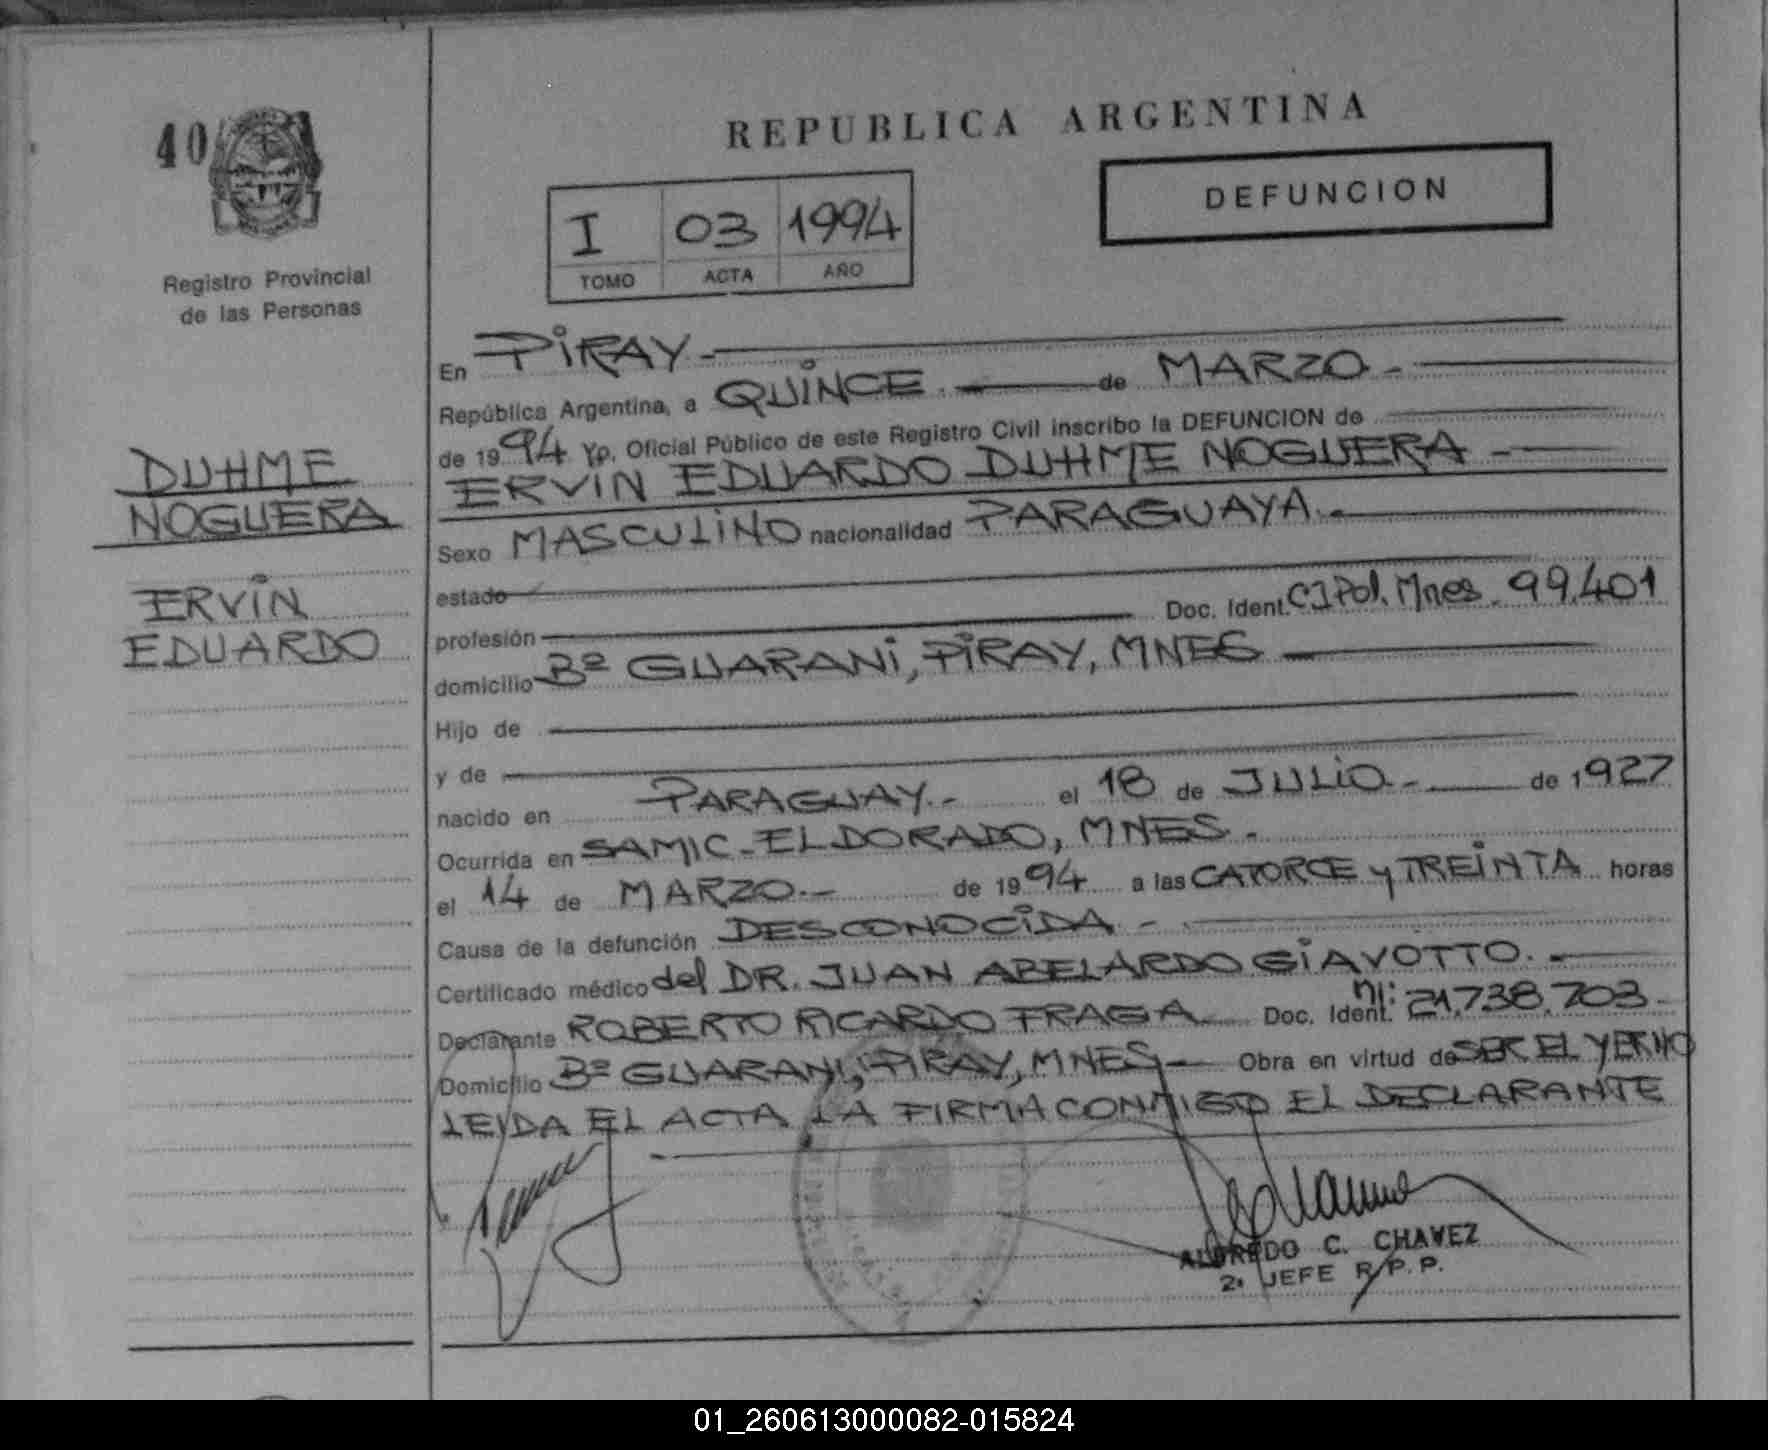 40
Registro Provincial
de las Personas
DUHME
NOGUERA
ERVIN
EDUARDO
REPUBLICA ARGENTINA
I 03 1994
TOMO ACTA AÑO
DEFUNCION
En PIRAY.-
República Argentina, a QUINCE de MARZO.-
de 1994 Yo, Oficial Público de este Registro Civil inscribo la DEFUNCION de
ERVIN EDUARDO DUHME NOGUERA -
Sexo MASCULINO nacionalidad PARAGUAYA.-
estado
profesión Doc. Ident. CIPol. Mnes. 99.401
domicilio Bº GUARANI, PIRAY, MNES
Hijo de
y de
nacido en PARAGUAY.- el 18 de JULIO.- de 1927
Ocurrida en SAMIC-ELDORADO, MNES.
el 14 de MARZO.- de 1994 a las CATORCE y TREINTA horas
Causa de la defunción DESCONOCIDA -
Certificado médico del DR. JUAN ABELARDO GIAVOTTO.-
Declarante ROBERTO RICARDO FRAGA Doc. Ident. NI: 21.738.703-
Domicilio Bº GUARANI, PIRAY, MNES- Obra en virtud de SER EL YERNO
LEIDA EL ACTA LA FIRMA CONMIGO EL DECLARANTE
ALFREDO C. CHAVEZ
2º JEFE R.P.P.
01_260613000082-015824